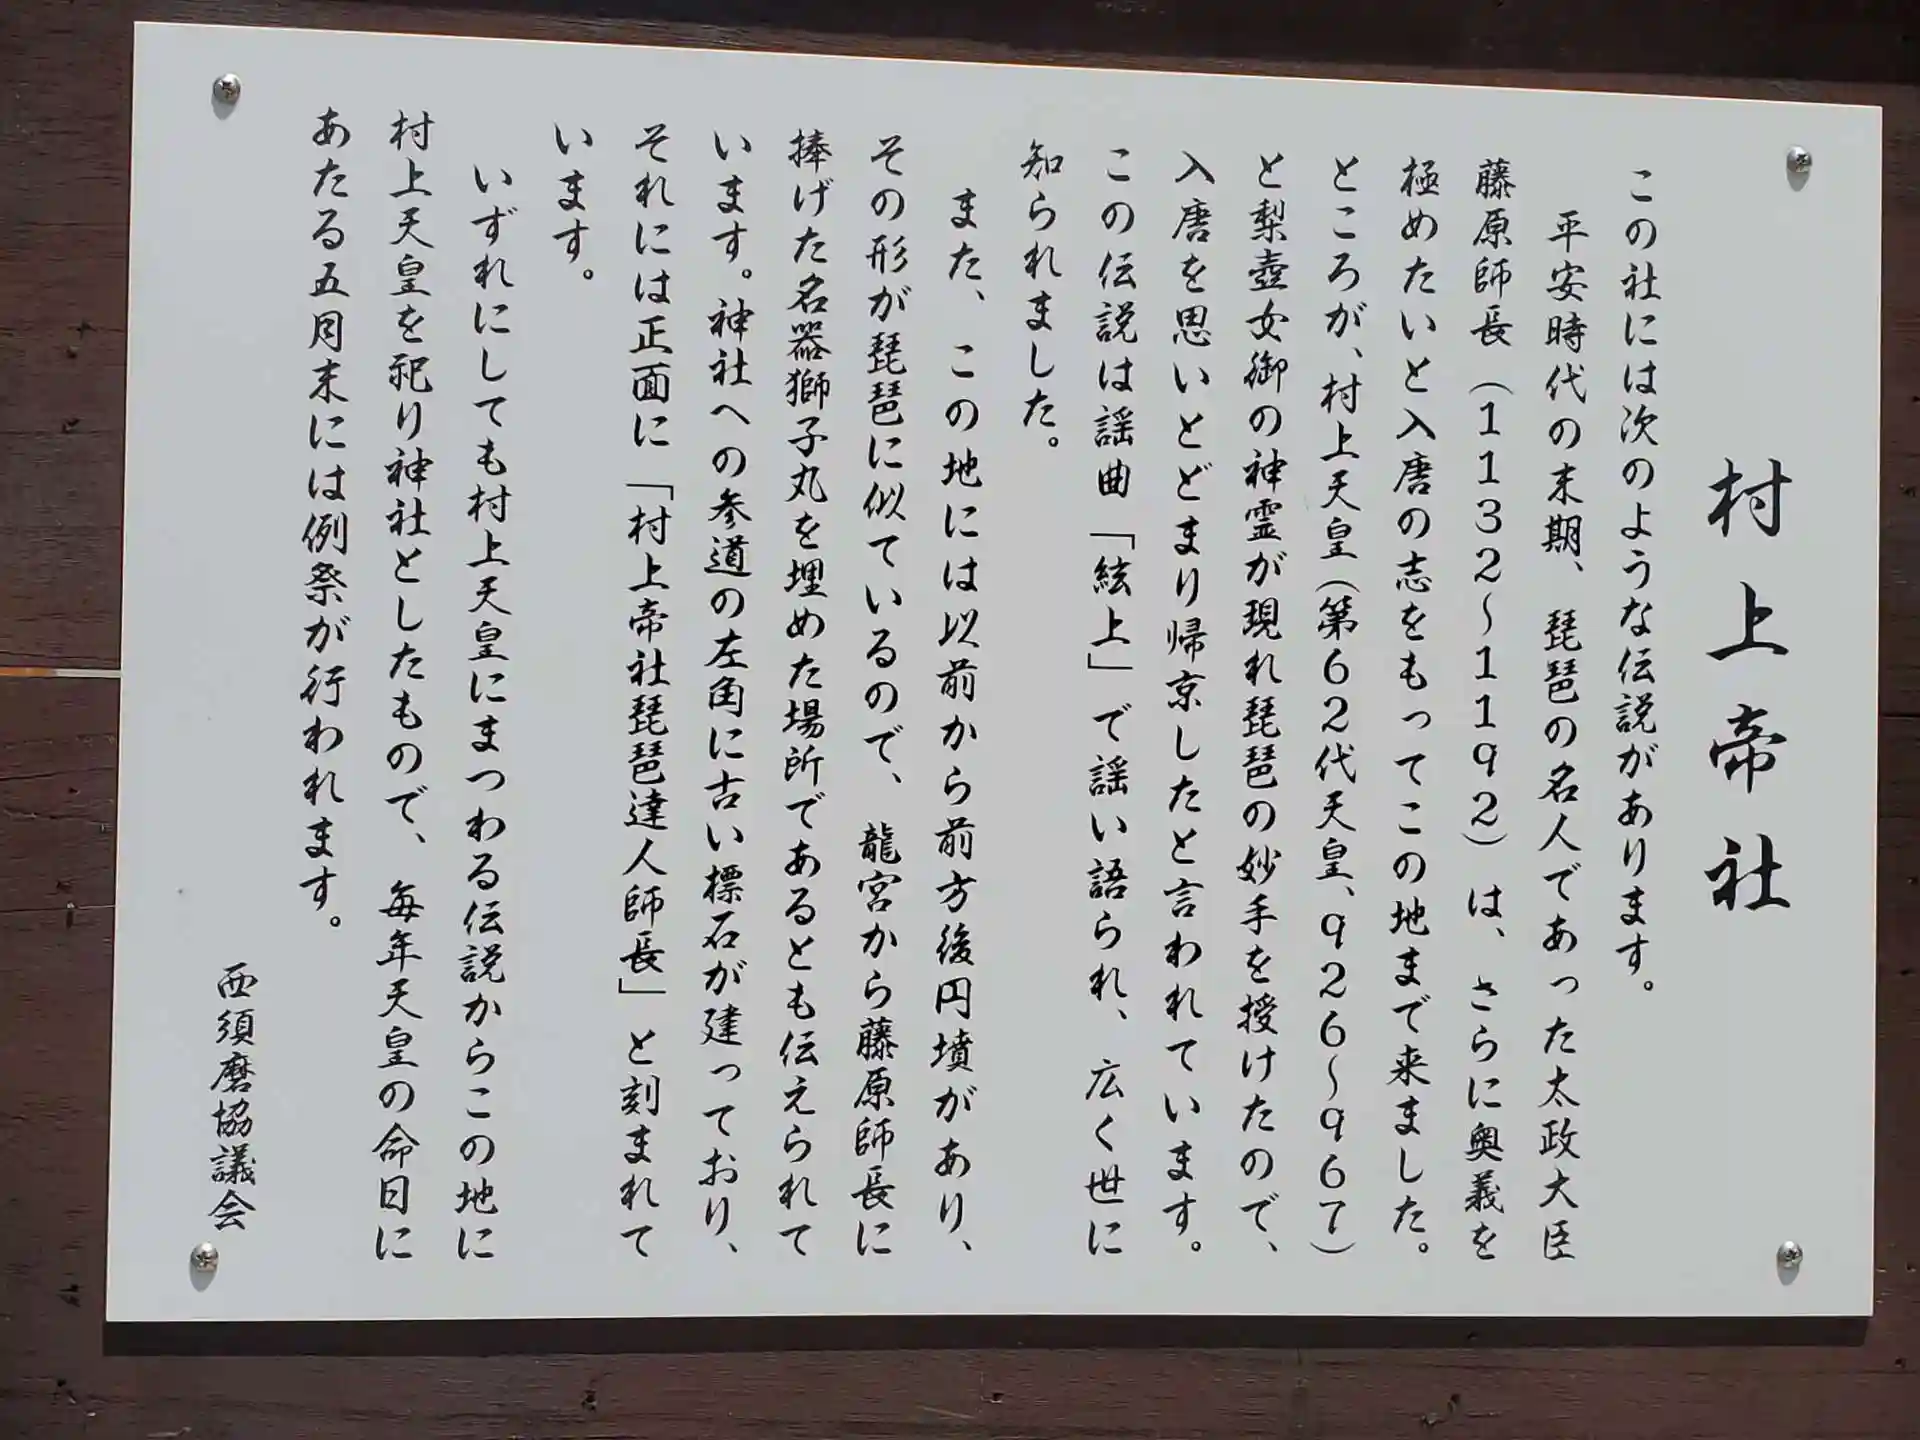 村上帝社
この社には次のような伝説があります。
平安時代の末期、琵琶の名人であった太政大臣
藤原師長（1132〜1192）は、さらに奥義を
極めたいと入唐の志をもってこの地まで来ました。
ところが、村上天皇（第62代天皇、926〜967）
と梨壺女御の神霊が現れ琵琶の妙手を授けたので、
入唐を思いとどまり帰京したと言われています。
この伝説は謡曲「絃上」で謡い語られ、広く世に
知られました。
また、この地には以前から前方後円墳があり、
その形が琵琶に似ているので、龍宮から藤原師長に
捧げた名器獅子丸を埋めた場所であるとも伝えられて
います。神社への参道の左角に古い標石が建っており、
それには正面に「村上帝社琵琶達人師長」と刻まれて
います。
いずれにしても村上天皇にまつわる伝説からこの地に
村上天皇を祀り神社としたもので、毎年天皇の命日に
あたる五月末には例祭が行われます。
西須磨協議会